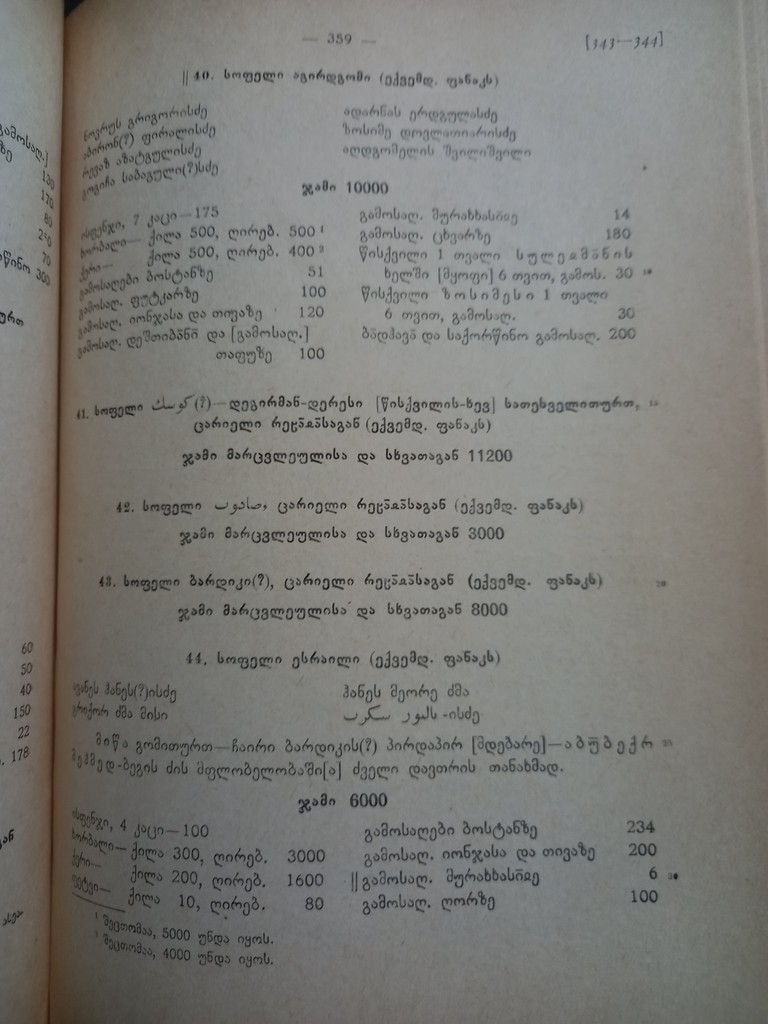 — 359 —
[343—344]
|| 40. სოფელი აგირდგომი (ექვემდ. ფანაკს)
ნოვრუს გრიგორისძე
აბირონ(?) ფირალისძე
რევაზ აზატგულისძე
გოგიჩა საბაგული(?)სძე
ადარნას ერდგულასძე
ზოსიმე დოვლათიარისძე
აღდგომელის შვილიშვილი
ჯამი 10000
ისფენჯი, 7 კაცი—175
ხორბალი— ქილა 500, ღირებ. 500 ¹
ქერი— ქილა 500, ღირებ. 400 ²
გამოსაღები ბოსტანზე 51
გამოსაღ. ფუტკარზე 100
გამოსაღ. იონჯასა და თივაზე 120
გამოსაღ. დეშთიბანი და [გამოსაღ.]
თაფუზე 100
გამოსაღ. მურახხასიჲე 14
გამოსაღ. ცხვარზე 180
წისქვილი 1 თვალი სულეჲმანის
ხელში [მყოფი] 6 თვით, გამოს. 30
წისქვილი ზოსიმესი 1 თვალი
6 თვით, გამოსაღ. 30
ბადჰავა და საქორწინო გამოსაღ. 200
41. სოფელი كوسك (?)—დეგირმან-დერესი [წისქვილის-ხევ] სათესველითურთ,
ცარიელი რეჲასაგან (ექვემდ. ფანაკს)
ჯამი მარცვლეულისა და სხვათაგან 11200
42. სოფელი , ცარიელი რეჲასაგან (ექვემდ. ფანაკს)
ჯამი მარცვლეულისა და სხვათაგან 3000
43. სოფელი ბარდიკი(?), ცარიელი რეჲასაგან (ექვემდ. ფანაკს)
ჯამი მარცვლეულისა და სხვათაგან 8000
44. სოფელი ესრაილი (ექვემდ. ფანაკს)
ჰანეს(?)ისძე
გრიქორ ძმა მისი
ჰანეს მეორე ძმა
-ისძე
მიწა გომითურთ—ჩაირი ბარდიკის(?) პირდაპირ [მდებარე]—აბუბექრ
მეჰმედ-ბეგის ძის მფლობელობაში[ა] ძველი დავთრის თანახმად.
ჯამი 6000
ისფენჯი, 4 კაცი—100
ხორბალი— ქილა 300, ღირებ. 3000
ქერი— ქილა 200, ღირებ. 1600
ფეტვი— ქილა 10, ღირებ. 80
გამოსაღები ბოსტანზე 234
გამოსაღ. იონჯასა და თივაზე 200
|| გამოსაღ. მურახხასიჲე 6
გამოსაღ. ღორზე 100
¹ შეცთომაა, 5000 უნდა იყოს.
² შეცთომაა, 4000 უნდა იყოს.